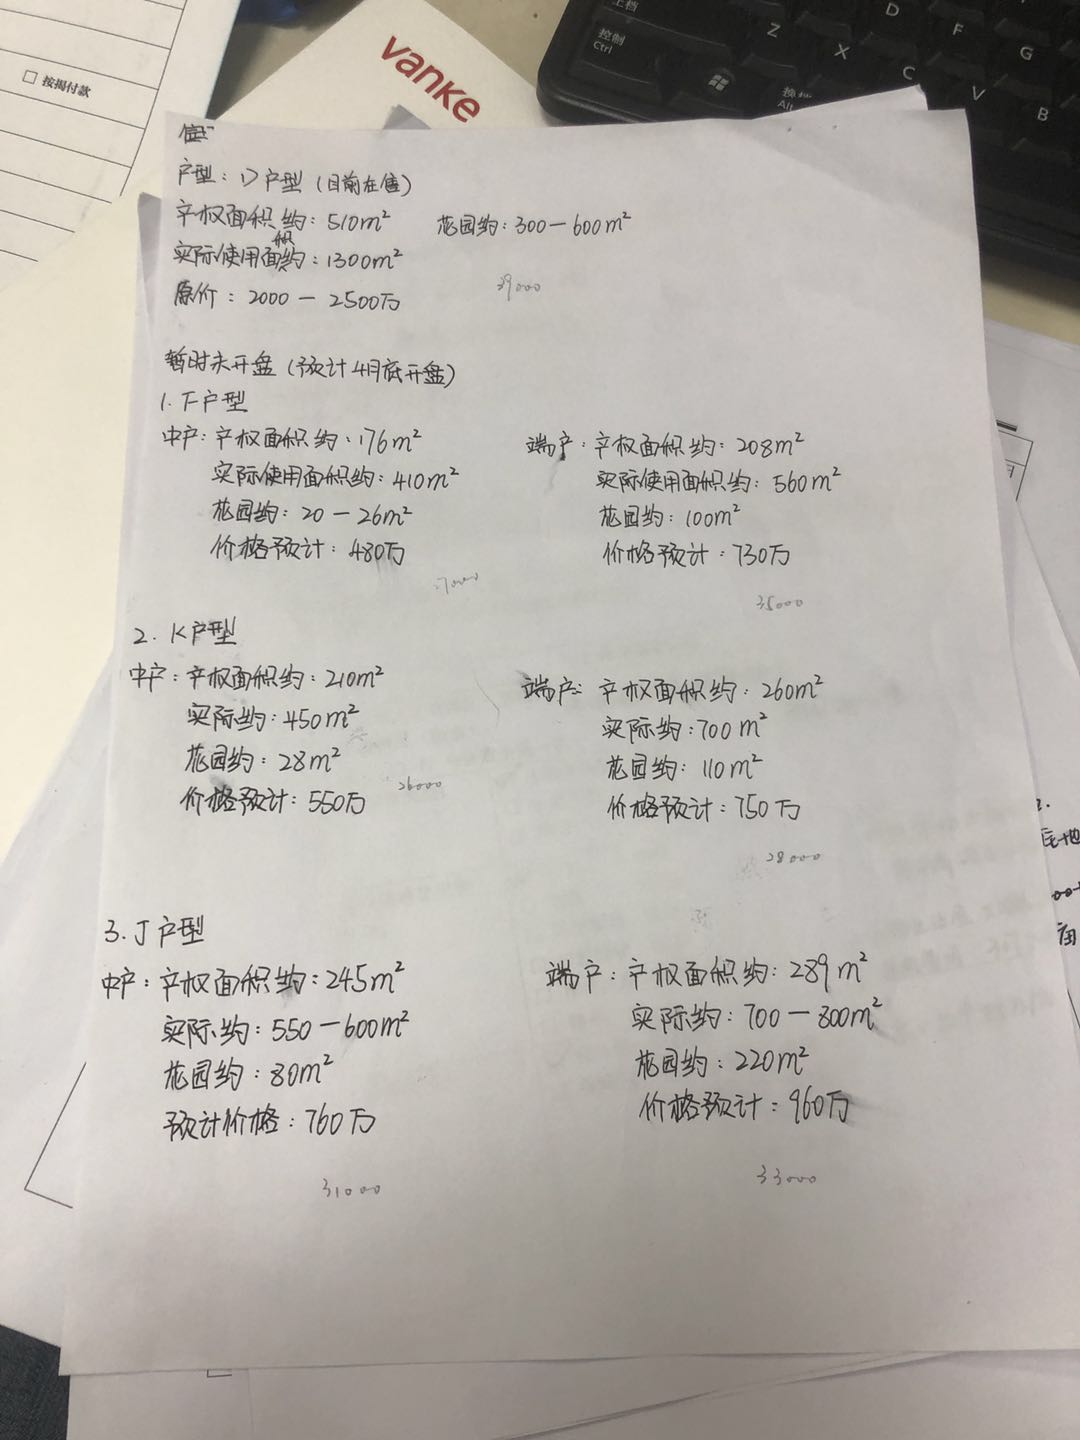 □ 按揭付款
vanke
上档
控制
Ctrl
Z
X
C
V
B
D
F
G
换档
Alt
户型：D户型（目前在售）
产权面积约：510m² 花园约：300－600m²
实际使用面积约：1300m²
原价：2000－2500万
39000
暂时未开盘（预计4月底开盘）
1. F户型
中户：产权面积约：176m²
实际使用面积约：410m²
花园约：20－26m²
价格预计：480万
27000
端户：产权面积约：208m²
实际使用面积约：560m²
花园约：100m²
价格预计：730万
35000
2. K户型
中户：产权面积约：210m²
实际约：450m²
花园约：28m²
价格预计：550万
26000
端户：产权面积约：260m²
实际约：700m²
花园约：110m²
价格预计：750万
28000
3. J户型
中户：产权面积约：245m²
实际约：550－600m²
花园约：80m²
预计价格：760万
31000
端户：产权面积约：289m²
实际约：700－800m²
花园约：220m²
价格预计：960万
33000